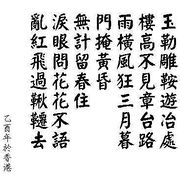 玉勒雕鞍遊冶處
樓高不見章台路
雨橫風狂三月暮
門掩黃昏
無計留春住
淚眼問花花不語
亂紅飛過鞦韆去
乙酉年於香港